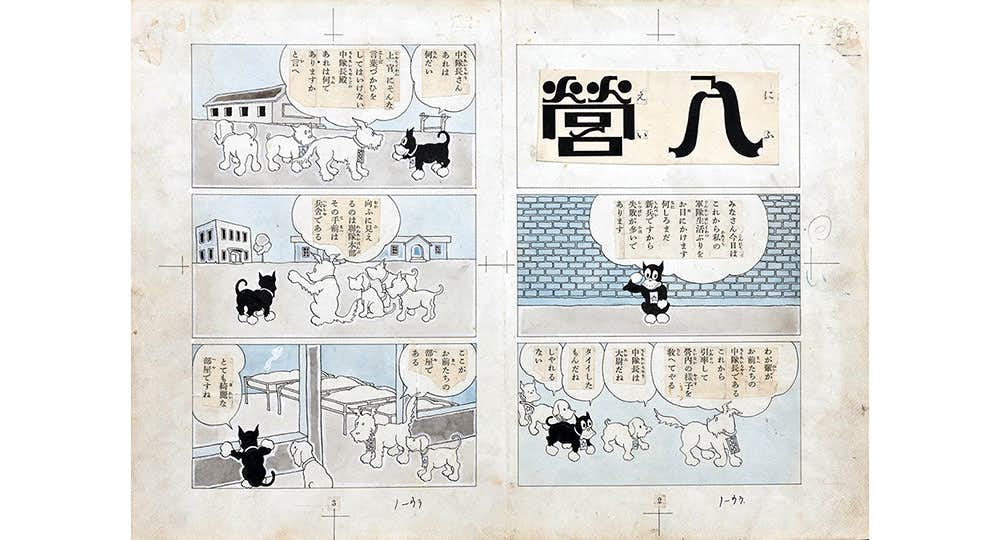 入營
にふ
えい
みなさん今日は
これから私の
軍隊生活ぶりを
お目にかけます
何しろまだ
新兵ですから
失敗が多いで
あります
わが輩が
お前たちの
中隊長である
これから
引率して
營内の様子を
教へてやる
中隊長は
大尉だね
タイイした
もんだね
しやれる
ない
2
1-33
中隊長さん
あれは
何だい
上官にそんな
言葉づかひを
してはいけない
中隊長殿
あれは何で
ありますか
と言へ
向ふに見え
るのは聯隊本部
その手前は
兵舎である
ここが
お前たちの
部屋で
ある
とても綺麗な
部屋ですね
3
1-33